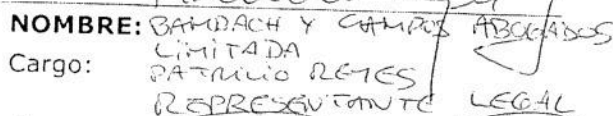 NOMBRE: BAMBACH Y CAMPOS ABOGADOS
LIMITADA
Cargo: PATRICIO REYES
REPRESENTANTE LEGAL